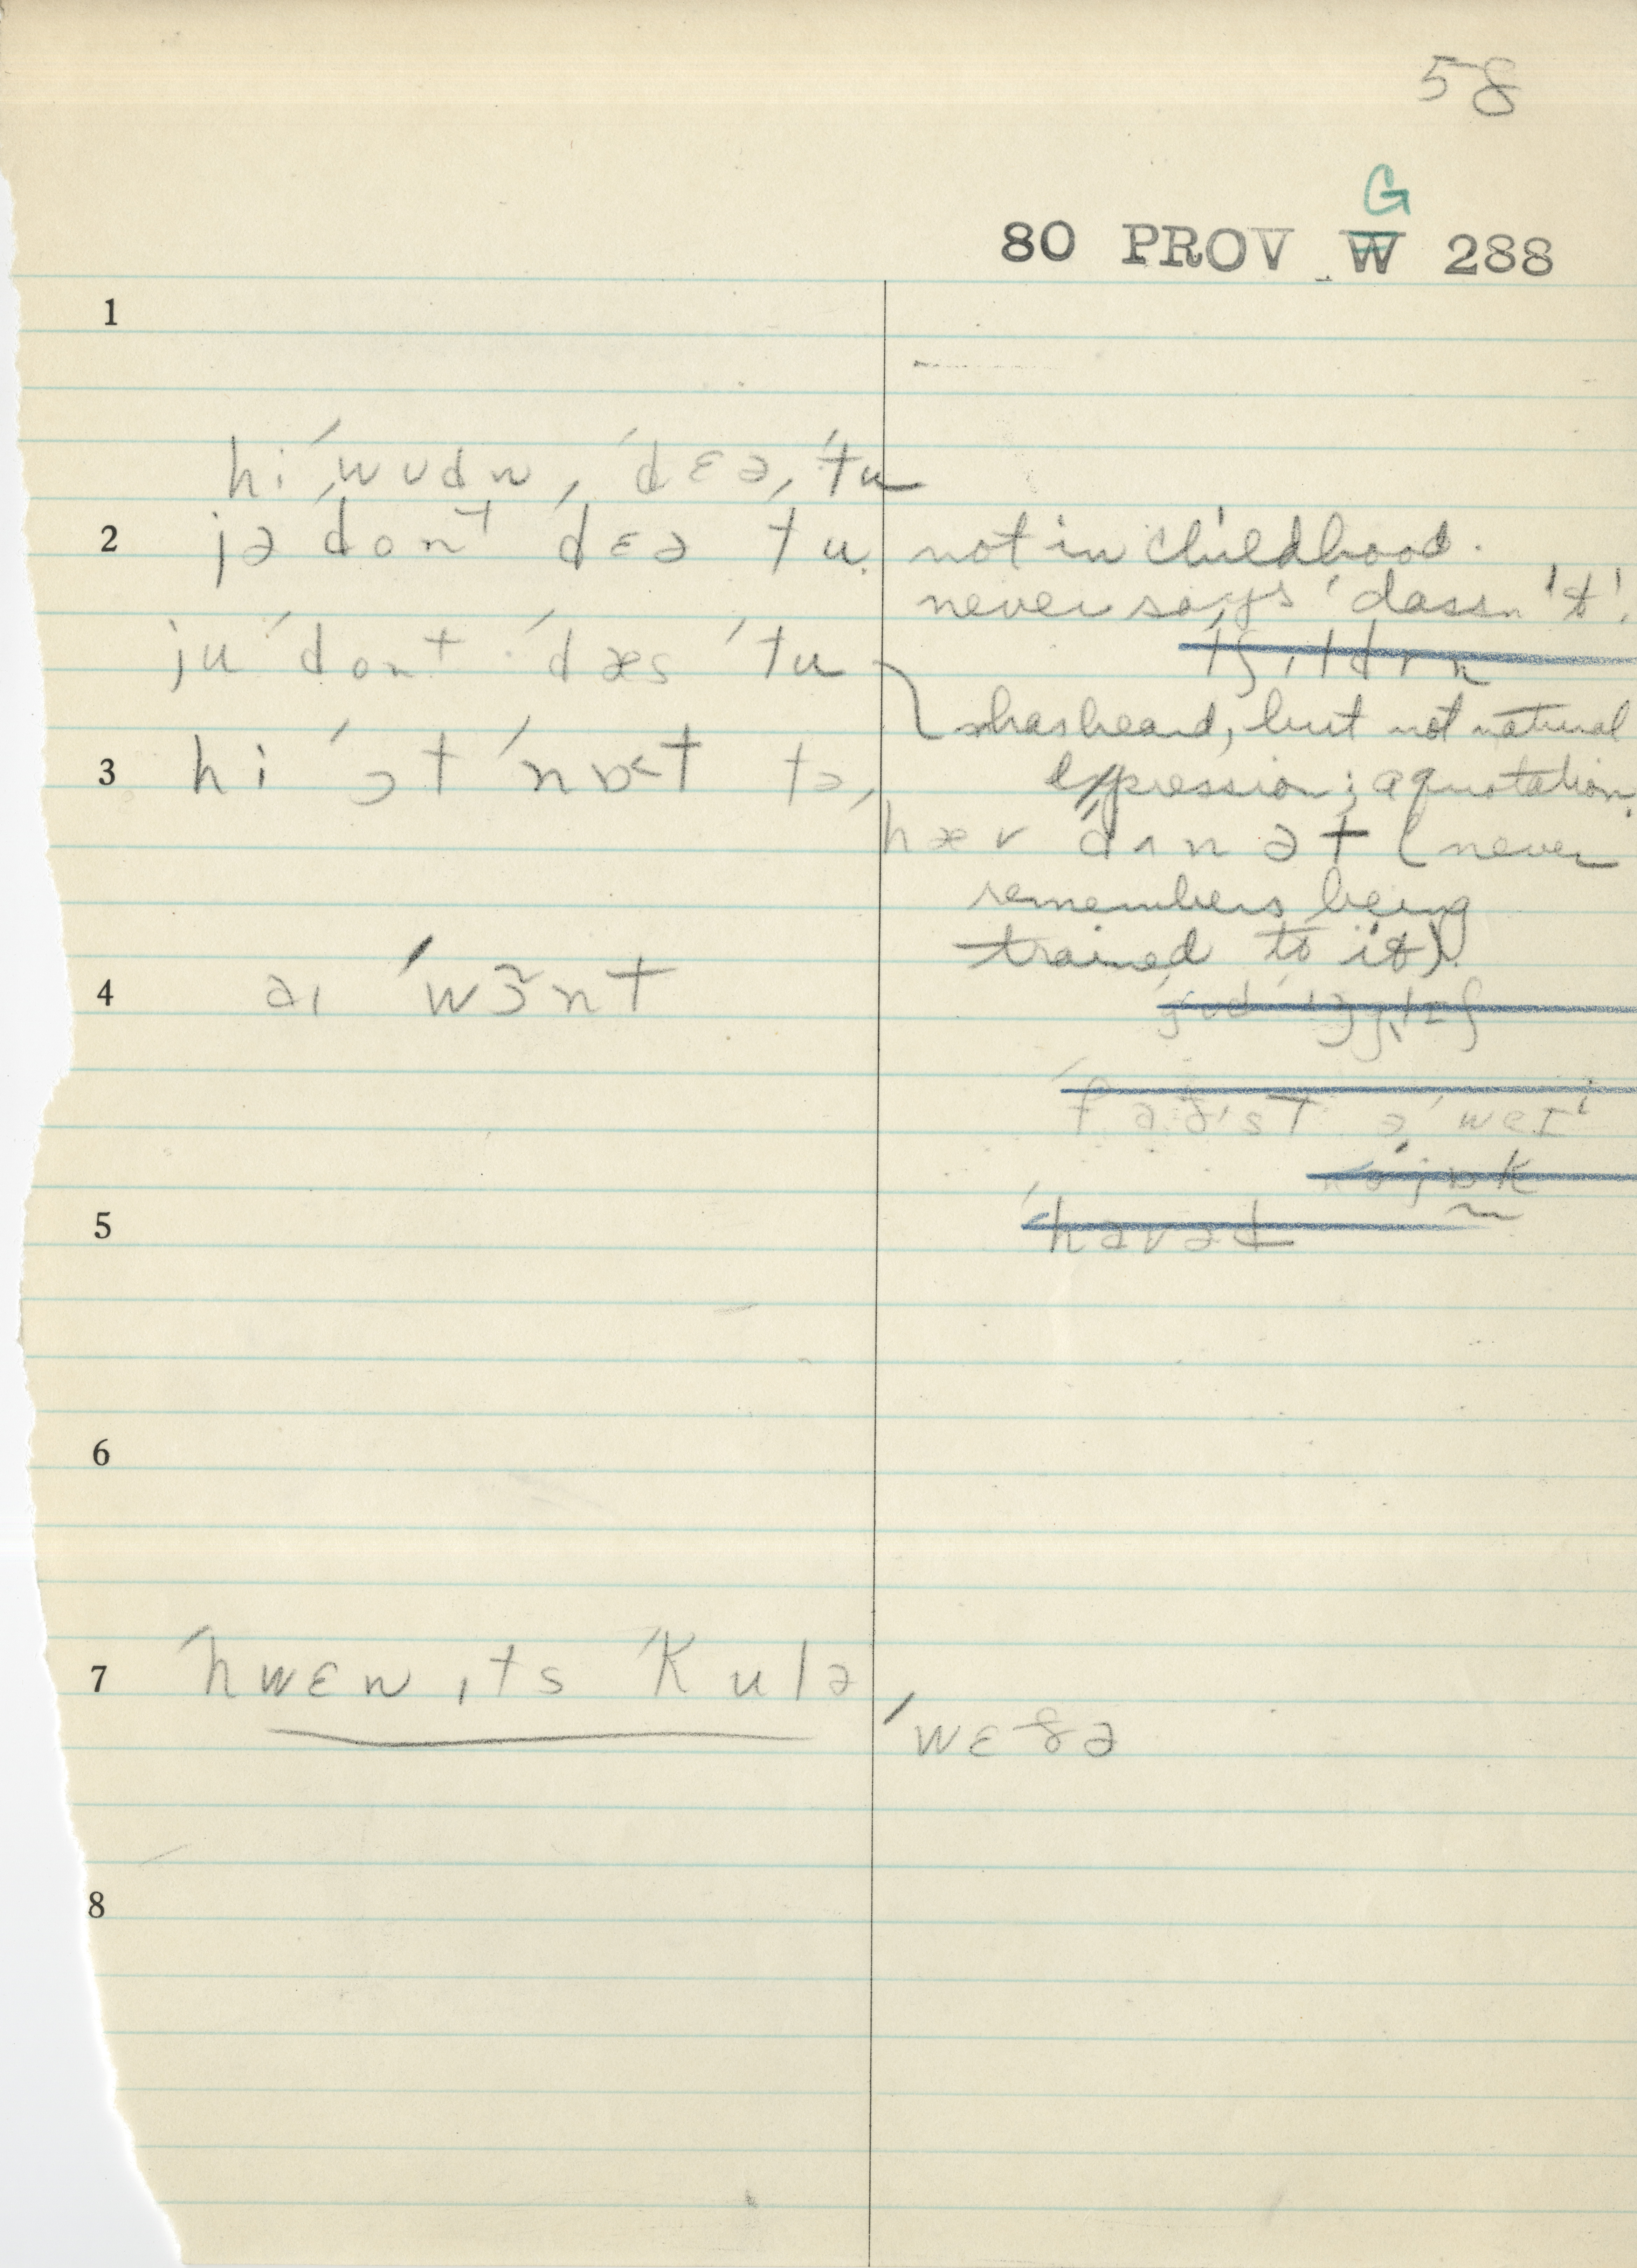 58
G
80 PROV W 288
1
hi ˈwʊdn, ˈdɛə, ˈtu
2 jə ˈdont ˈdɛə ˈtu. not in childhood.
never says 'dassn't'.
ju ˈdont ˈdæs ˈtu
has heard, but not natural
3 hi ˈɔt ˈnɒ<t tə,
expression; a quotation.
hæv dʌn ət (never
remembers being
trained to it).
4 aɪ ˈwɜ̃nt
5
6
7 ˈhwɛn ɪts ˈkulə
ˈwɛðə
8